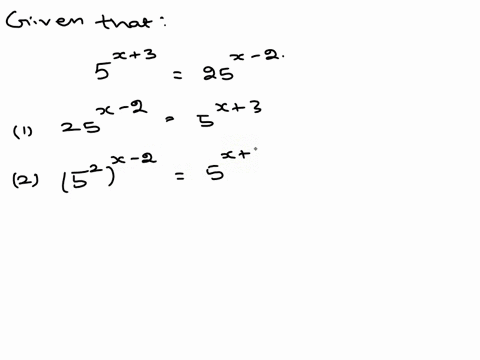 Given that:
5^{x+3} = 25^{x-2}.
(1) 25^{x-2} = 5^{x+3}
(2) (5^2)^{x-2} = 5^{x+